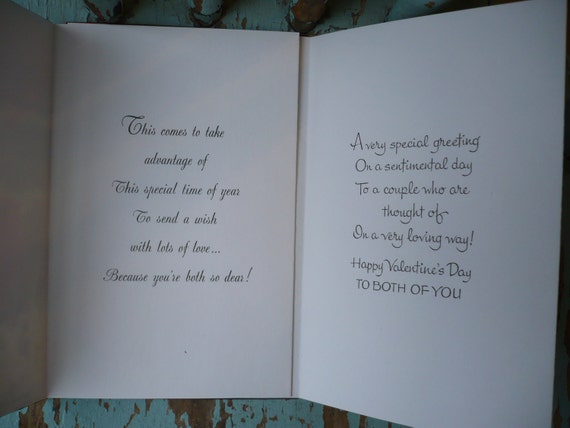 This comes to take
advantage of
This special time of year
To send a wish
with lots of love...
Because you're both so dear!
A very special greeting
On a sentimental day
To a couple who are
thought of
In a very loving way!
Happy Valentine's Day
TO BOTH OF YOU